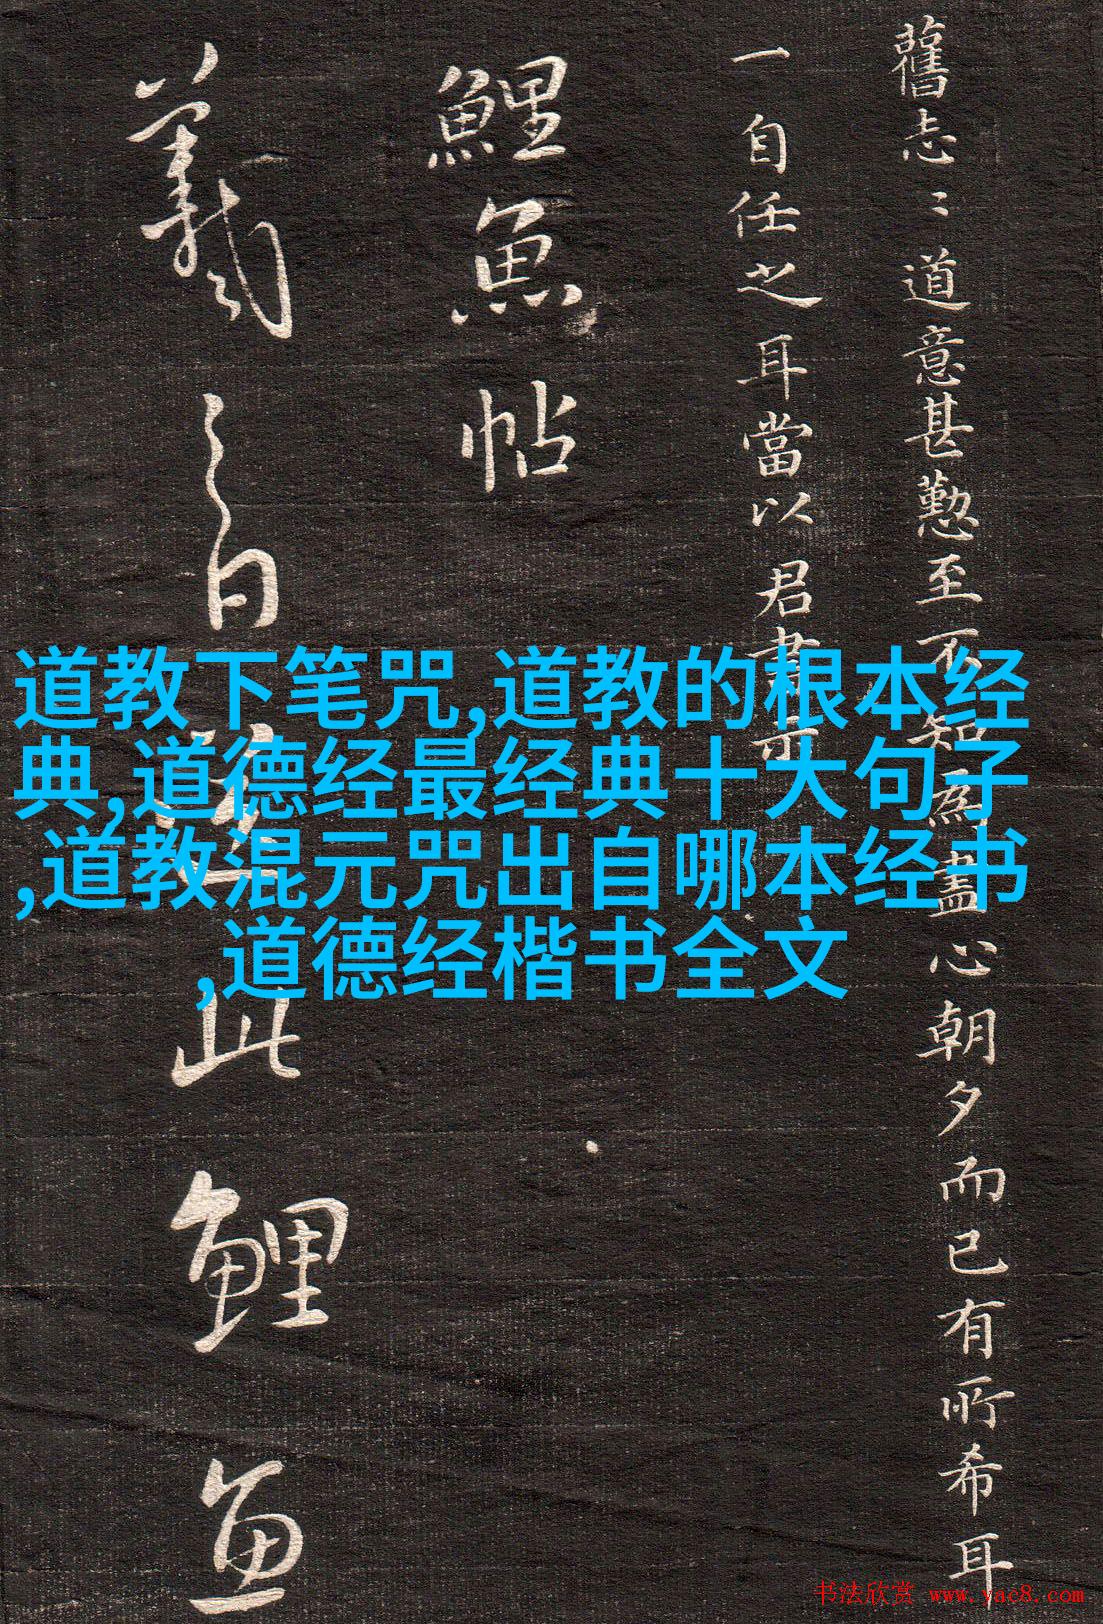 舊志〻道意甚懃至不知為盡心朝夕而已有所希耳
一自任之耳當以君書示
鯉魚帖
羲之白送此鯉魚
道教下笔咒,道教的根本经
典,道德经最经典十大句子
,道教混元咒出自哪本经书
,道德经楷书全文
书法欣赏 www.yac8.com